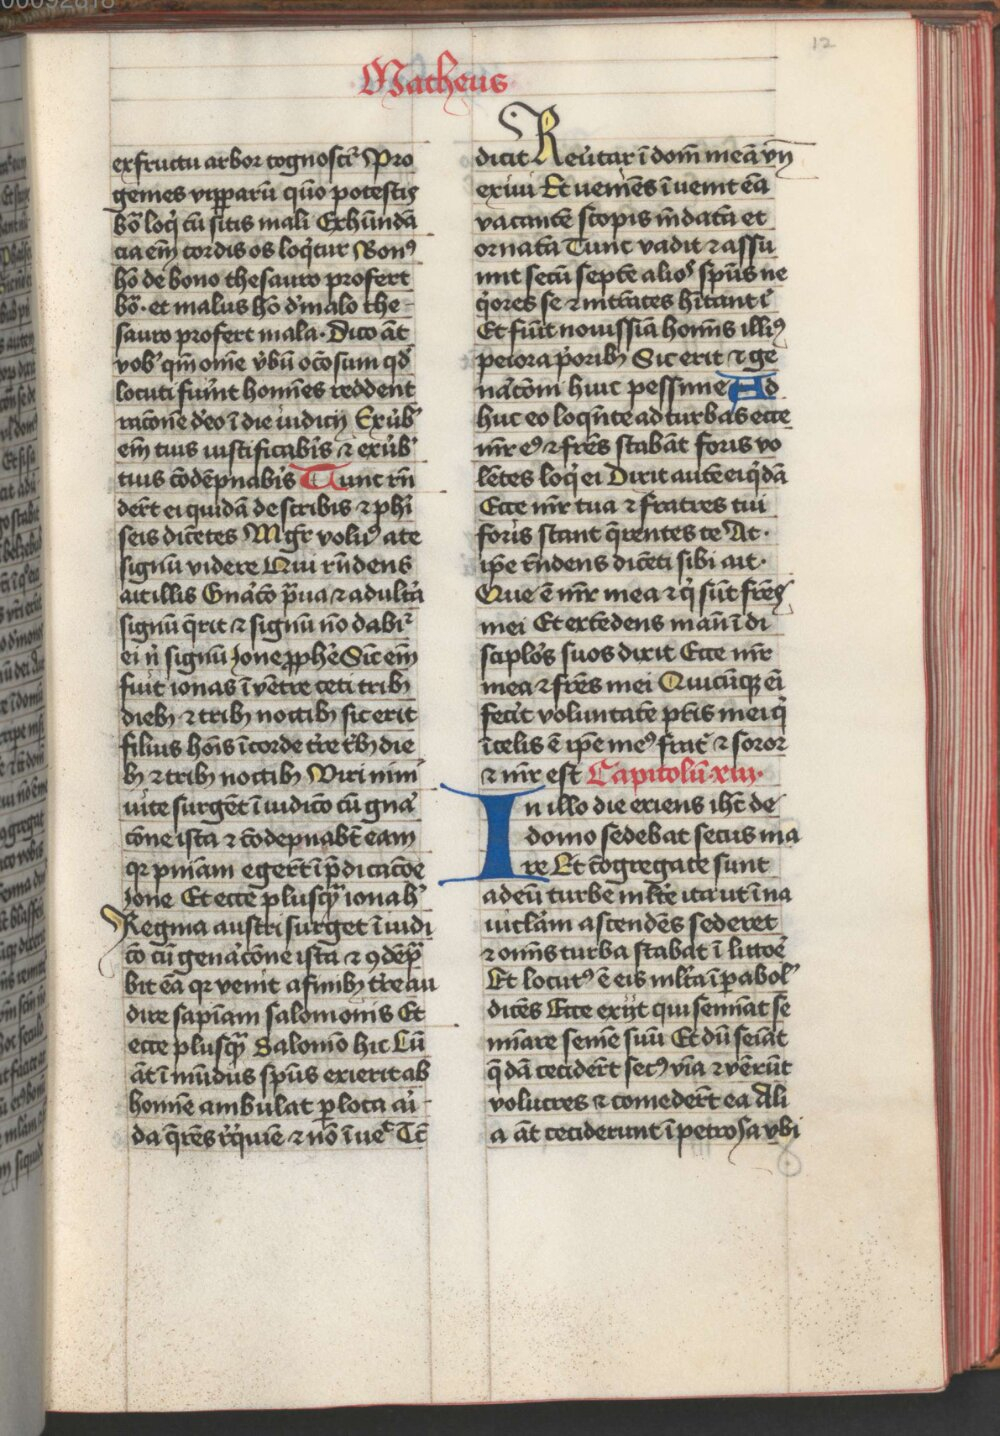 12
Matheus
ex fructu arbor cognoscit᷑ Pro
genies viꝑparū quō potestis
bō loq̇ cū sitis mali Ex hūndā
cia em̄ cordis os loq̇tur Bonꝰ
hō de bono thesauro profert
bō · et malus hō d̓ malo the
sauro profert mala · Dico āt
vob̓ qm̄ om̄e v̓bū ocōsum qd̓
locuti fue̓int homīes reddent
racōne d̓ eo ī die iudicij Ex v̓b̓
em̄ tuis iustificab̓is ⁊ ex v̓b̓
tuis cōdēpnab̓is Tunc rn̄
dert̄ ei quidā de scribis ⁊ phi̓
seis dicētes Mgr̄ volumꝰ a te
signū videre Qui rn̄dens
ait illis Gn̄acō p̄ua ⁊ adult̓a
signū q̄rit ⁊ signū nō dabit᷑
ei n̓ signū Jone ꝓphē Sic em̄
fuit ionas ī vētre ceti trib
dieb ⁊ trib noctib sic erit
filius hōis ī corde t̓re t̓b die
b ⁊ trib noctib Viri nini
uite surgēt ī iudicō cū gn̄a
cōne ista ⁊ cōdepnabt̄ eam
qr pn̄iam egert̄ ī p̄dicacōe
Jone Et ecce plusq̄ ionah̓
Regina austri surget ī iudi
cō cū gen̄acōne ista ⁊ ꝯdēp̄
bit eā qr venit a finib t̓re au
dire sapīam salomonis Et
ecce plusq̄ Salomō hic Cū
āt ī mūdus sp̄us exierit ab
homīe ambulat ꝑ loca ar̓i
da q̄rēs r̓q̇uiē ⁊ nō īueᶜ Tc̄
dicit Reu̓tar ī domū meā vn̄
exiui Et ueniēs īuenit eā
vacantē scopis m̄datā et
ornatā Tunc vadit ⁊ assu
mit secū septē alios sp̄us ne
q̇ores se ⁊ int̓ātes hītant iᷓ
Et fiūt nouissīa homīs illiꝰ
peiora p̓orib Sic erit ⁊ ge
nācōni huic pessime Ad
huc eo loqn̄te ad turbas ecce
mr̄ eꝰ ⁊ fr̄es stabāt foris vo
lētes loq̇ ei Dixit autē ei q̇dā
Ecce mr̄ tua ⁊ fratres tui
foris stant q̄rentes te At ·
ip̄e rn̄dens dicēti sibi ait ·
Que ē mr̄ mea ⁊ q̇ sūt fr̄es
mei Et extēdens manū ī di
scip̄los suos dixit Ecce mr̄
mea ⁊ fr̄es mei Quicūqꝫ ei̓
fecit voluntatē pt̄is mei q̇
ī celis ē ip̄e meꝰ frat̓ ⁊ soror
⁊ mr̄ est Capitolū · xiij ·
In illo die exiens ihc̄ de
domo sedebat secus ma
re Et cōgregate sunt
ad eū turbe ml̄te ita ut ī na
uiclam ascendēs sederet
⁊ om̄is turba stabat ī littoē
Et locutꝰ ē eis ml̄ta ī ꝑabol̓
dicēs Ecce exijt qui semīat se
mīare semē suū Et dū seīāt
q̄dā cecidert̄ secꝰ vīa ⁊ venēr̄ūt
volucres ⁊ comedert̄ ea Ali
a āt ceciderunt ī petrosa vbi